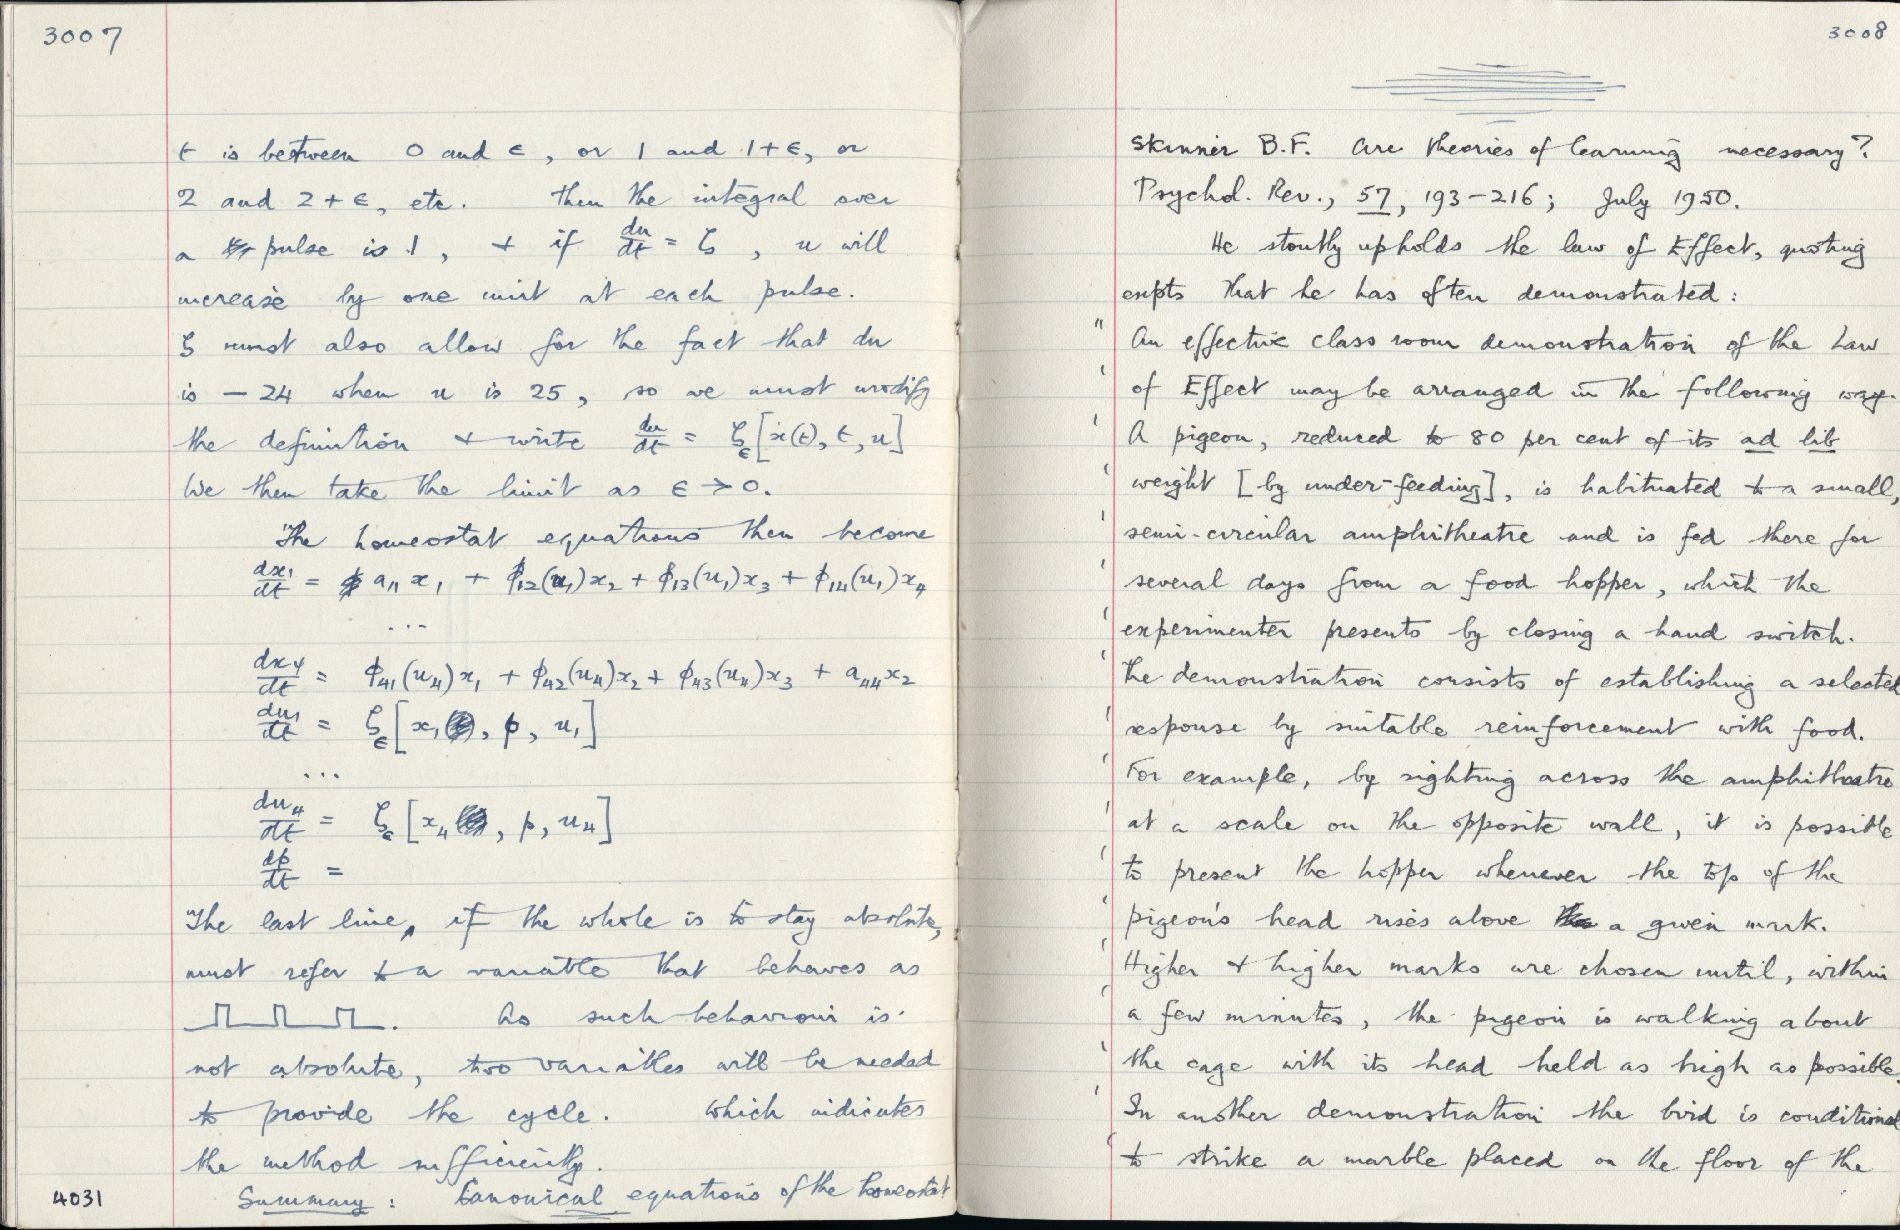 3007
t is between 0 and ϵ, or 1 and 1+ϵ, or
2 and 2+ϵ, etc. Then the integral over
a pulse is 1, + if du/dt = ζ, u will
increase by one unit at each pulse.
ζ must also allow for the fact that du
is −24 when u is 25, so we must modify
the definition + write du/dt = ζ_ϵ[x(t), t, u]
We then take the limit as ϵ → 0.
The homeostat equations then become
dx₁/dt = a₁₁x₁ + ϕ₁₂(u₁)x₂ + ϕ₁₃(u₁)x₃ + ϕ₁₄(u₁)x₄
...
dx₄/dt = ϕ₄₁(u₄)x₁ + ϕ₄₂(u₄)x₂ + ϕ₄₃(u₄)x₃ + a₄₄x₂
du₁/dt = ζ_ϵ[x₁, p, u₁]
...
du₄/dt = ζ_ϵ[x₄, p, u₄]
dp/dt =
The last line, if the whole is to stay absolute,
must refer to a variable that behaves as
. As such behaviour is
not absolute, two variables will be needed
to provide the cycle. Which indicates
the method sufficiently.
Summary: Canonical equations of the homeostat
4031
3008
Skinner B.F. Are theories of learning necessary?
Psychol. Rev., 57, 193-216; July 1950.
He stoutly upholds the law of Effect, quoting
expts that he has often demonstrated:
" An effective class room demonstration of the Law
' of Effect may be arranged in the following way.
' A pigeon, reduced to 80 per cent of its ad lib
' weight [by under-feeding], is habituated to a small,
' semi-circular amphitheatre and is fed there for
' several days from a food hopper, which the
' experimenter presents by closing a hand switch.
' The demonstration consists of establishing a selected
' response by suitable reinforcement with food.
' For example, by sighting across the amphitheatre
' at a scale on the opposite wall, it is possible
' to present the hopper whenever the top of the
' pigeon's head rises above a given mark.
' Higher + higher marks are chosen until, within
' a few minutes, the pigeon is walking about
' the cage with its head held as high as possible
' In another demonstration the bird is conditioned
' to strike a marble placed on the floor of the